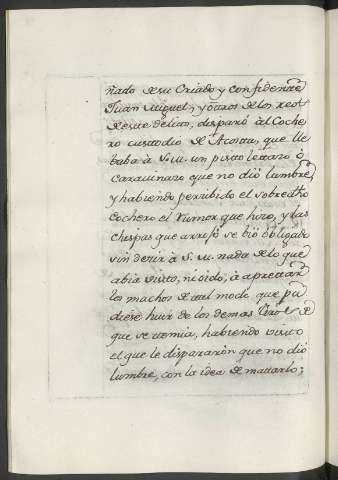 ñado de su Criado y confidente
Juan Miguel, y otros de los reos
de este delito, disparó al Coche
ro custodio de Acosta, que lle
baba à S. M. un pistoletazo ò
Caravinazo que no diò lumbre,
y habiendo percibido el sobredho
Cochero el rumor que hizo, y las
chispas que arrojó se biò obligado
sin decir à S. M. nada de lo que
abia visto, ni oido, à aprettar
los machos de tal modo que pu
diese huir de los demas tiros de
que se temia, habiendo visto
el que le dispararón que no diò
lumbre, con la idea de matarlo;